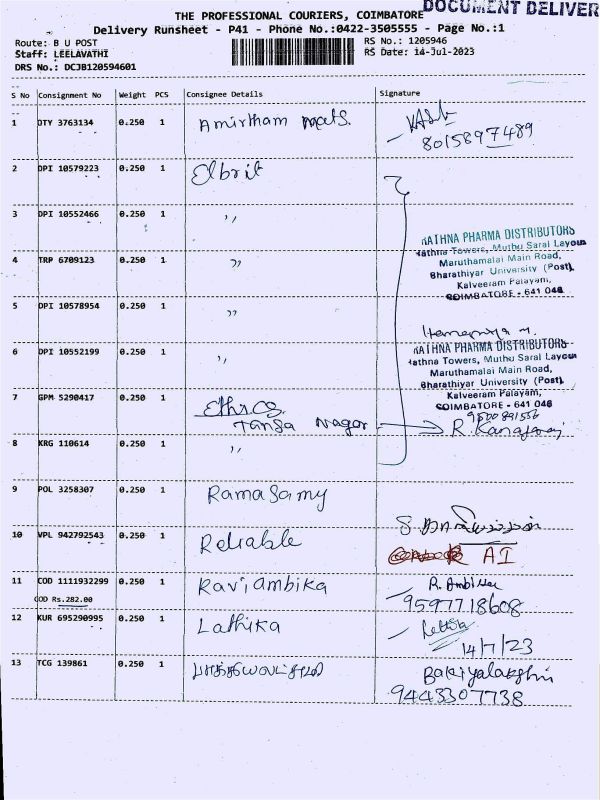 THE PROFESSIONAL COURIERS, COIMBATORE
DOCUMENT DELIVER
Delivery Runsheet - P41 - Phone No.:0422-3505555 - Page No.:1
Route: B U POST
RS No.: 1205946
Staff: LEELAVATHI
RS Date: 14-Jul-2023
DRS No.: DCJB120594601
S No Consignment No Weight PCS Consignee Details Signature
1 DTY 3763134 0.250 1 Amirtham mats.
8015897489
2 DPI 10579223 0.250 1 Elbrit
3 DPI 10552466 0.250 1 ,,
RATHNA PHARMA DISTRIBUTORS
Rathna Towers, Muthu Saral Layout
4 TRP 6709123 0.250 1 ,,
Maruthamalai Main Road,
Bharathiyar University (Post),
Kalveeram Palayam,
COIMBATORE - 641 046
5 DPI 10578954 0.250 1 ,,
RATHNA PHARMA DISTRIBUTORS
6 DPI 10552199 0.250 1 ,,
Rathna Towers, Muthu Saral Layout
Maruthamalai Main Road,
Bharathiyar University (Post),
Kalveeram Palayam,
COIMBATORE - 641 046
7 GPM 5290417 0.250 1 Ethics
9500891556
Tansa Nagar
R. Kanagaraj
8 KRG 110614 0.250 1 ,,
9 POL 3258307 0.250 1 Ramasamy
10 VPL 942792543 0.250 1 Reliable
AI
11 COD 1111932299 0.250 1 Ravi ambika
R. Ambika
COD Rs.282.00
9597718608
12 KUR 695290995 0.250 1 Lathika
14/7/23
13 TCG 139861 0.250 1 பாக்கியலட்சுமி
Bakiyalakshmi
9443307738